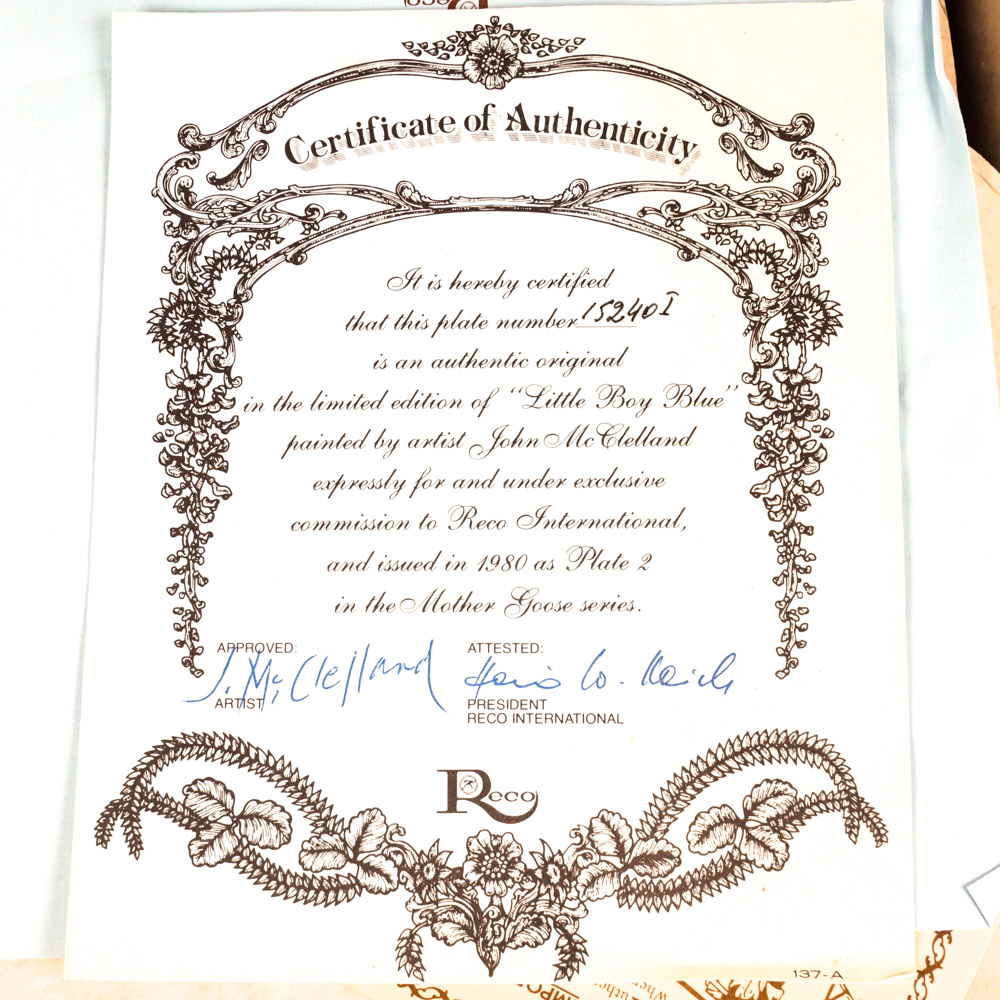 Certificate of Authenticity
It is hereby certified
that this plate number 15240 I
is an authentic original
in the limited edition of "Little Boy Blue"
painted by artist John McClelland
expressly for and under exclusive
commission to Reco International,
and issued in 1980 as Plate 2
in the Mother Goose series.
APPROVED: ATTESTED:
J. McClelland
ARTIST PRESIDENT
RECO INTERNATIONAL
Reco
137-A